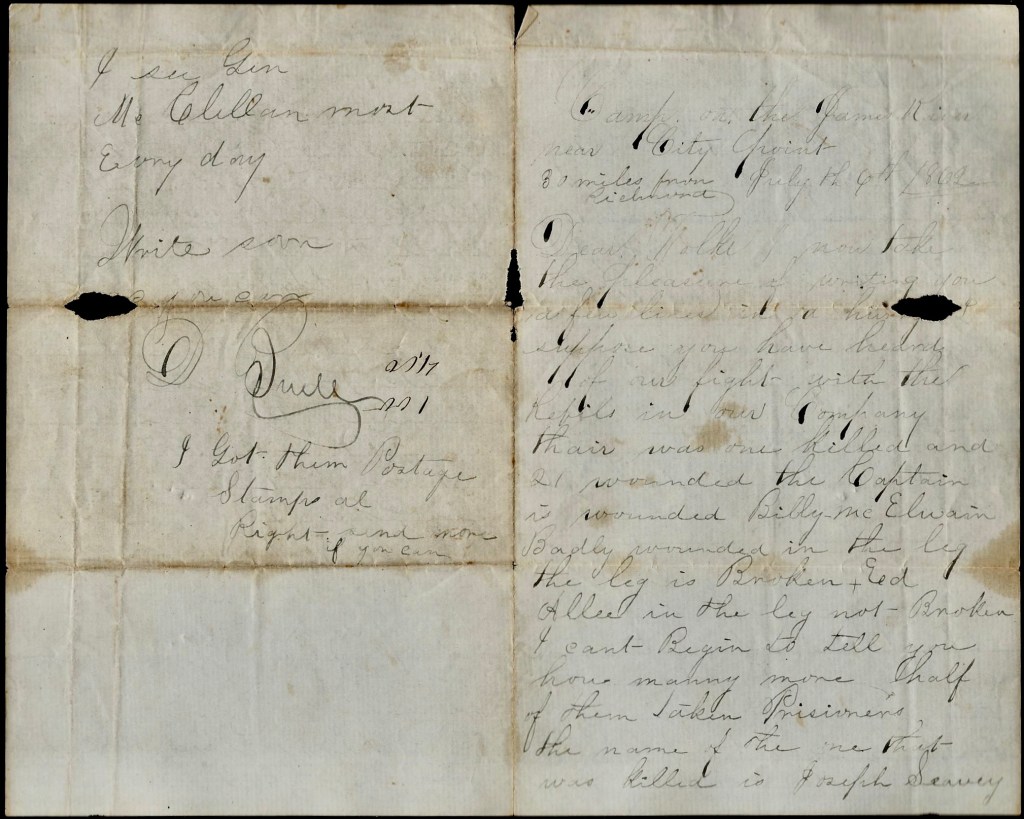 I see Gen
Mc Clellan most
Evory day
Write soon
if you can
D Buell
I Got them Postage
Stamps al
Right send more
if you can
Camp on the James River
near City Point
30 miles from July th 6th 1862
Richmond
Dear Folks I now take
the pleasure of writing you
a few lines in a hurry I
suppose you have heard
of our fight with the
Rebils in our Company
thair was one killed and
21 wounded the Captain
is wounded Billy Mc Elwain
Badly wounded in the leg
the leg is Broken + Eed
Allee in the leg not Broken
I cant Begin to tell you
how manny more half
of them taken Prisioners
the name of the one that
was killed is Joseph Seavey